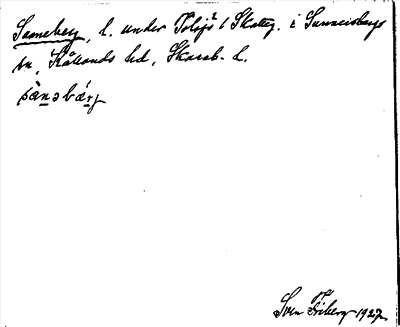 Sanneberg, l. under Tolsjö 1 Skatteg. i Sunnersbergs
sn, Kållands hd, Skarab. l.
sànəbǽrj
Sven Friberg 1927.